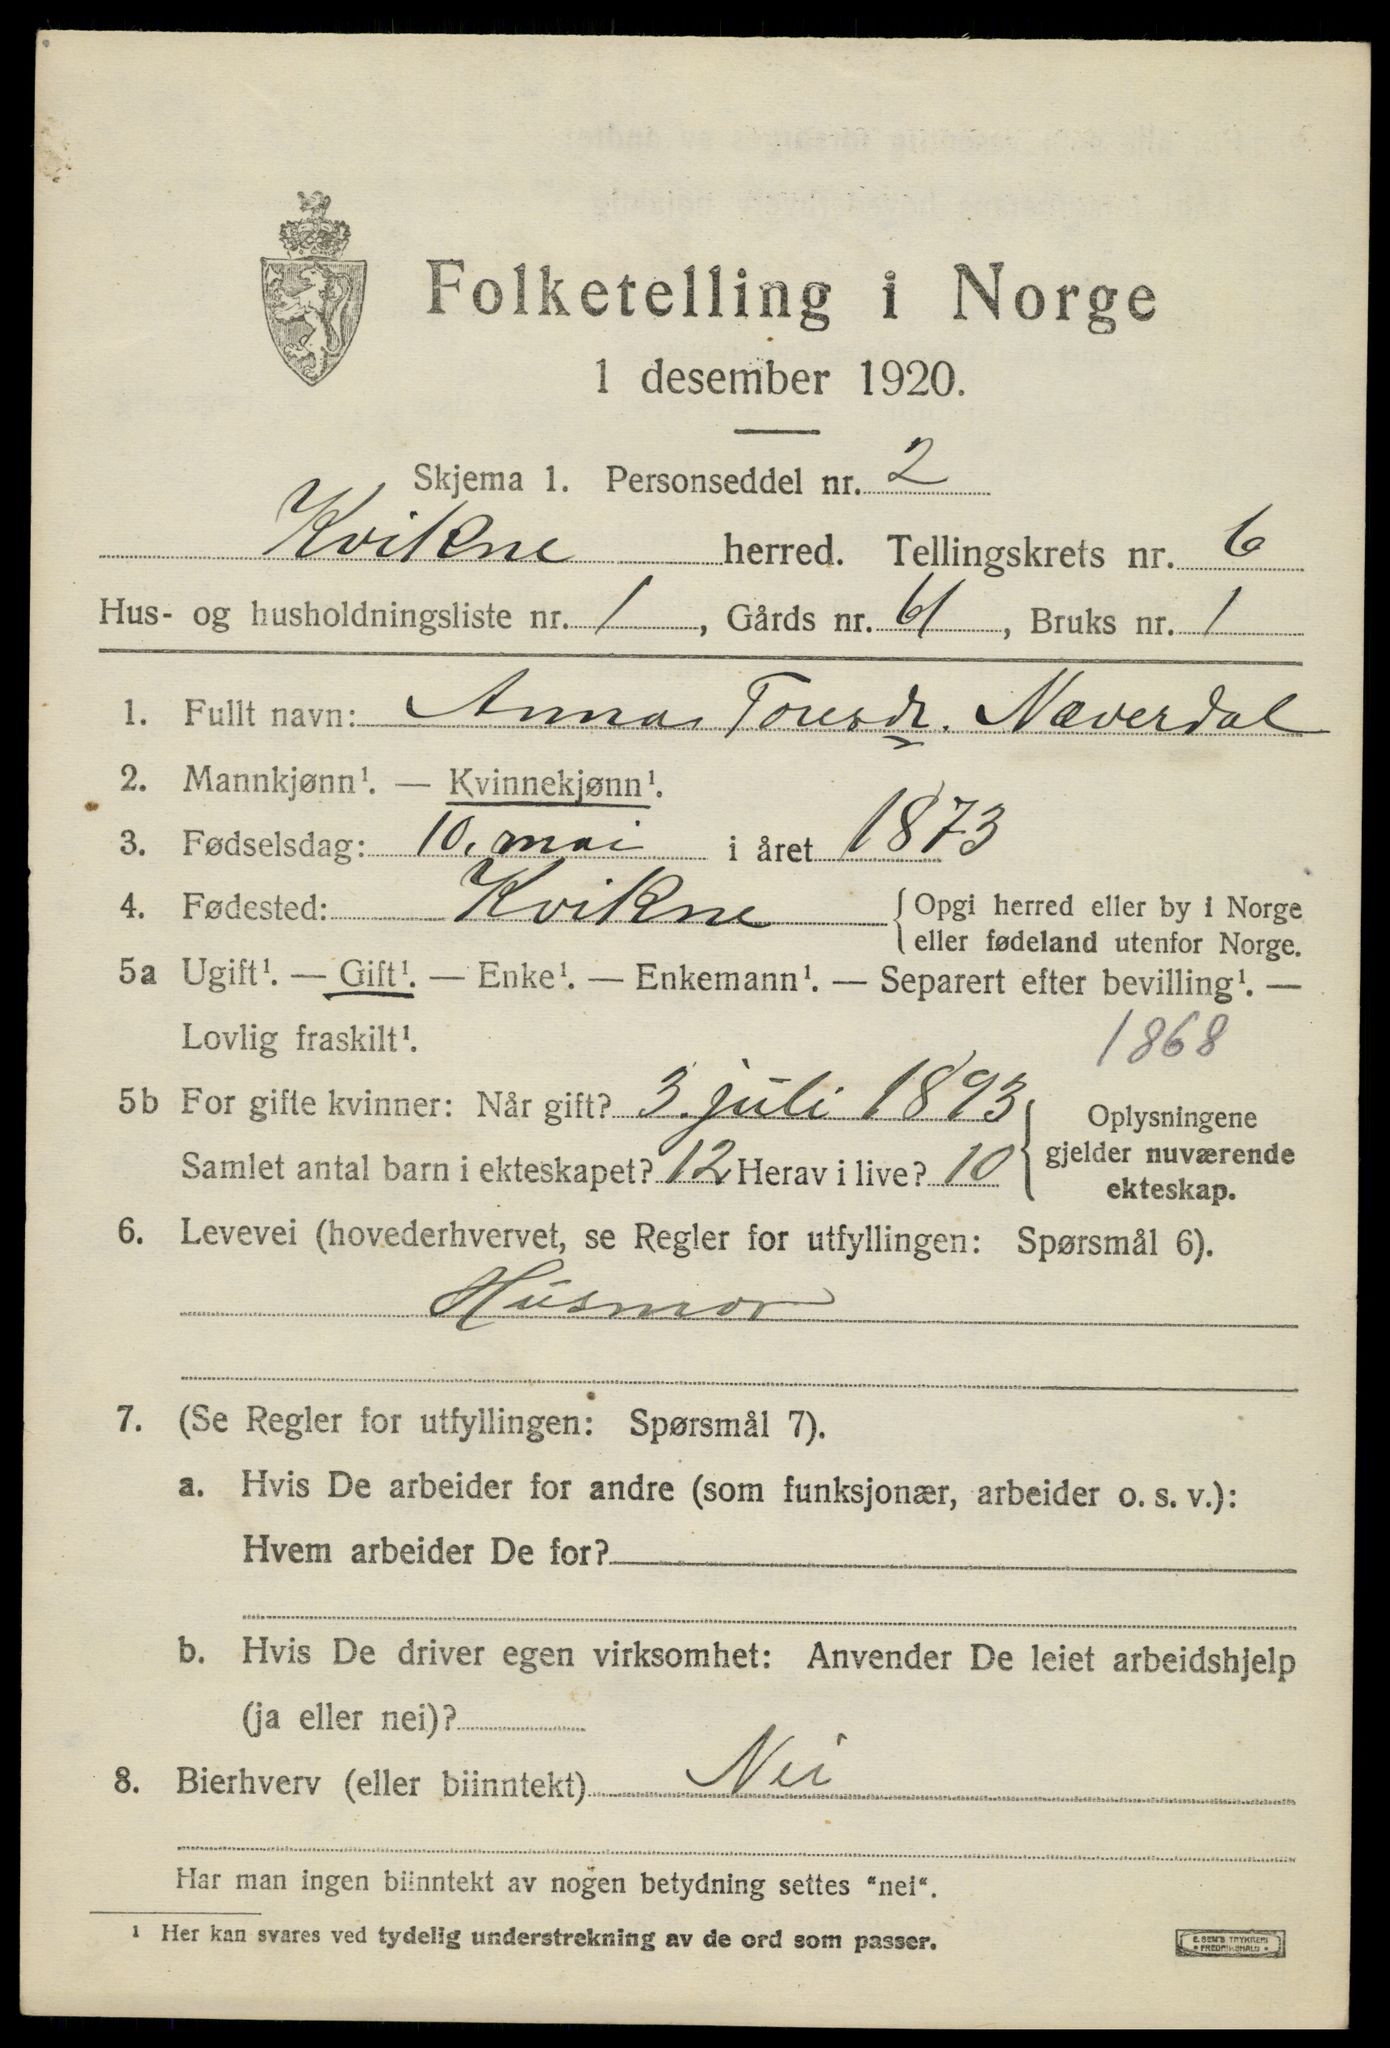 Folketelling i Norge
1 desember 1920.
Skjema 1. Personseddel nr. 2
Kvikne herred. Tellingskrets nr. 6
Hus- og husholdningsliste nr. 1, Gårds nr. 61, Bruks nr. 1
1. Fullt navn: Anna Toresdr. Næverdal
2. Mannkjønn¹. — Kvinnekjønn¹.
3. Fødselsdag: 10. mai i året 1873
4. Fødested: Kvikne { Opgi herred eller by i Norge
eller fødeland utenfor Norge.
5a Ugift¹. — Gift¹. — Enke¹. — Enkemann¹. — Separert efter bevilling¹. —
Lovlig fraskilt¹. 1868
5b For gifte kvinner: Når gift? 3. juli 1893 { Oplysningene
Samlet antal barn i ekteskapet? 12 Herav i live? 10 gjelder nuværende
ekteskap.
6. Levevei (hovederhvervet, se Regler for utfyllingen: Spørsmål 6).
Husmor
7. (Se Regler for utfyllingen: Spørsmål 7).
a. Hvis De arbeider for andre (som funksjonær, arbeider o. s. v.):
Hvem arbeider De for?
b. Hvis De driver egen virksomhet: Anvender De leiet arbeidshjelp
(ja eller nei)?
8. Bierhverv (eller biinntekt) Nei
Har man ingen biinntekt av nogen betydning settes "nei".
¹ Her kan svares ved tydelig understrekning av de ord som passer.
E. SEM'S TRYKKERI
FREDRIKSHALD